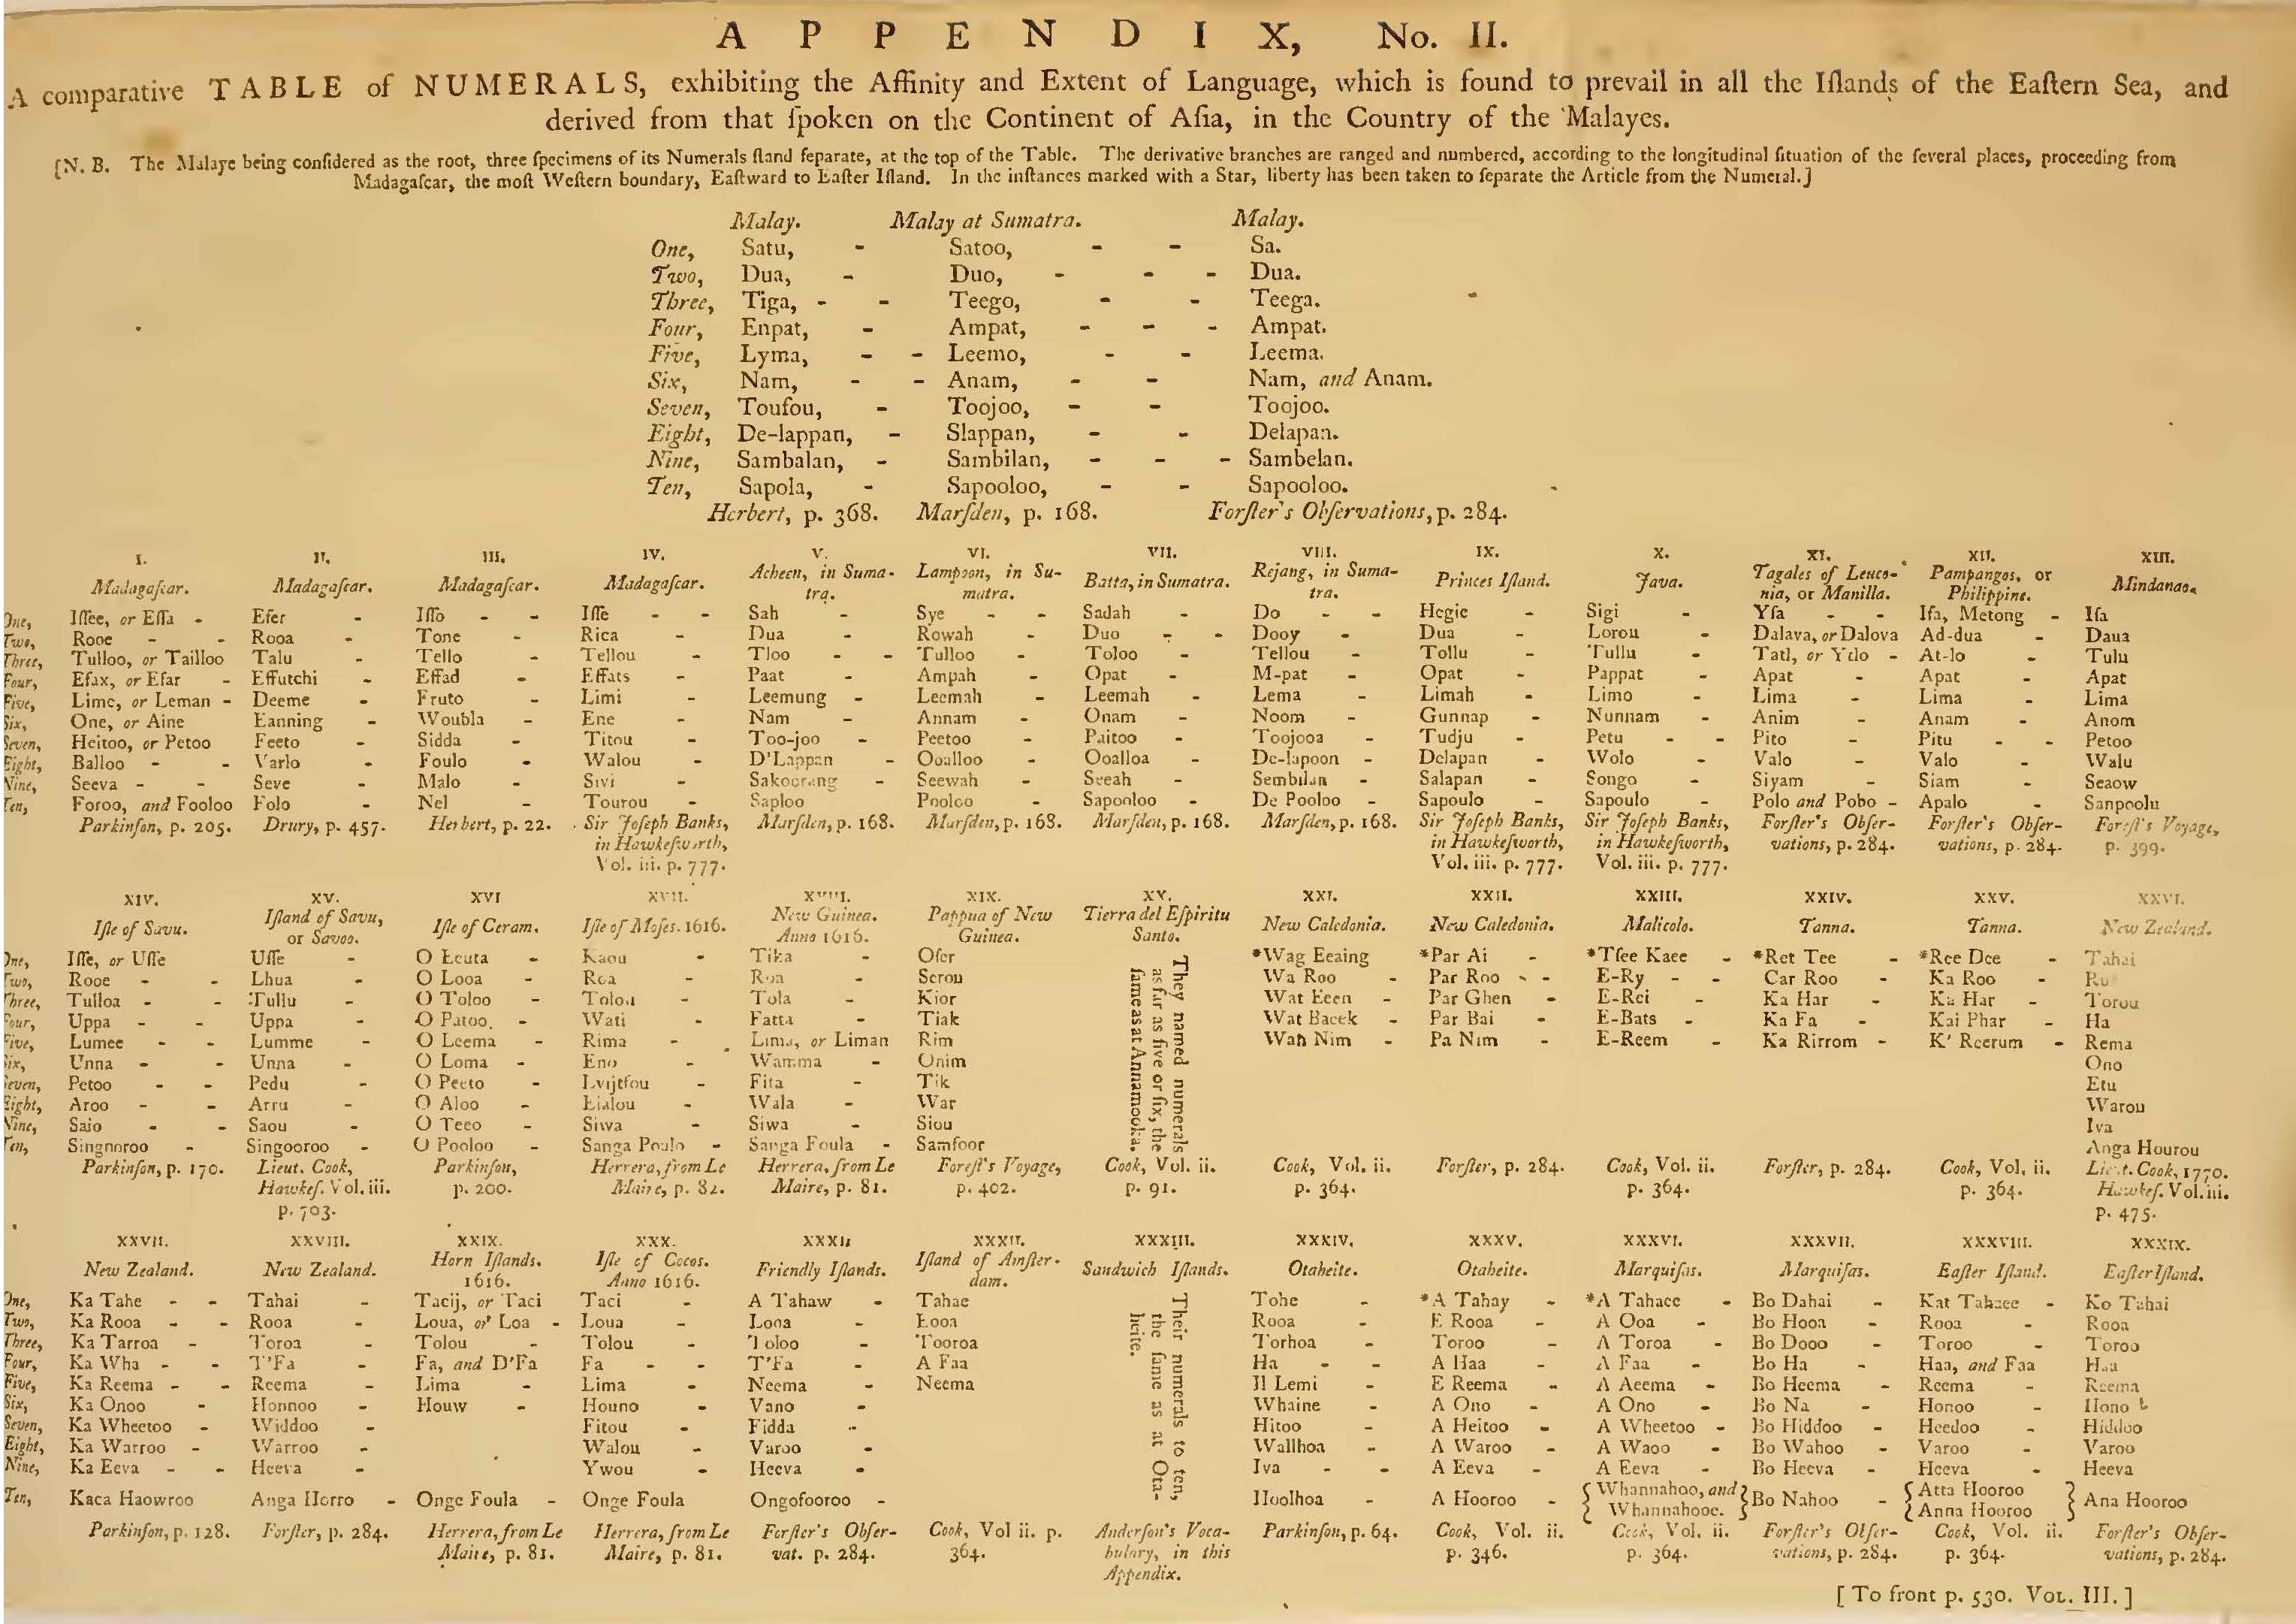 APPENDIX, No. II.
A comparative TABLE of NUMERALS, exhibiting the Affinity and Extent of Language, which is found to prevail in all the Iſlands of the Eaſtern Sea, and
derived from that ſpoken on the Continent of Aſia, in the Country of the Malayes.
[N. B. The Malaye being conſidered as the root, three ſpecimens of its Numerals ſtand ſeparate, at the top of the Table. The derivative branches are ranged and numbered, according to the longitudinal ſituation of the ſeveral places, proceeding from
Madagaſcar, the moſt Weſtern boundary, Eaſtward to Eaſter Iſland. In the inſtances marked with a Star, liberty has been taken to ſeparate the Article from the Numeral.]
Malay. Malay at Sumatra. Malay.
One, Satu, - Satoo, - - Sa.
Two, Dua, - Duo, - - - Dua.
Three, Tiga, - - Teego, - - Teega.
Four, Enpat, - Ampat, - - - Ampat.
Five, Lyma, - - Leemo, - - Leema.
Six, Nam, - - Anam, - - Nam, and Anam.
Seven, Toufou, - Toojoo, - - Toojoo.
Eight, De-lappan, - Slappan, - - Delapan.
Nine, Sambalan, - Sambilan, - - - Sambelan.
Ten, Sapola, - Sapooloo, - - Sapooloo.
Herbert, p. 368. Marſden, p. 168. Forſter's Obſervations, p. 284.
I. II. III. IV. V. VI. VII. VIII. IX. X. XI. XII. XIII.
Madagaſcar. Madagaſcar. Madagaſcar. Madagaſcar. Acheen, in Suma- Lampoon, in Su- Batta, in Sumatra. Rejang, in Suma- Princes Iſland. Java. Tagales of Leuco- Pampangos, or Mindanao.
tra. matra. tra. nia, or Manilla. Philippine.
One, Iſſee, or Eſſa - Efer Iſſo - - Iſſe - - Sah - Sye - - Sadah - Do - - Hegie - Sigi - Yſa - - Iſa, Metong - Iſa
Two, Rooe - - Rooa - Tone - Rica - Dua - Rowah - Duo - - Dooy - Dua - Lorou - Dalava, or Dalova Ad-dua - Daua
Three, Tulloo, or Tailloo Talu - Tello - Tellou - Tloo - - Tulloo - Toloo - Tellou - Tollu - Tullu - Tatl, or Ytlo - At-lo - Tulu
Four, Efax, or Efar - Effutchi - Effad - Effats - Paat - Ampah - Opat - M-pat - Opat - Pappat - Apat - Apat - Apat
Five, Lime, or Leman - Deeme - Fruto - Limi - Leemung - Leemah - Leemah - Lema - Limah - Limo - Lima - Lima - Lima
Six, One, or Aine Eanning - Woubla - Ene - Nam - Annam - Onam - Noom - Gunnap - Nunnam - Anim - Anam - Anom
Seven, Heitoo, or Petoo Feeto - Sidda - Titou - Too-joo - Peetoo - Paitoo - Toojooa - Tudju - Petu - - Pito - Pitu - - Petoo
Eight, Balloo - - Varlo - Foulo - Walou - D'Lappan - Ooalloo - Ooalloa - De-lapoon - Delapan - Wolo - Valo - Valo - Walu
Nine, Seeva - - Seve - Malo - Sivi - Sakoorang - Seewah - Seeah - Sembilan - Salapan - Songo - Siyam - Siam - Seaow
Ten, Foroo, and Fooloo Folo - Nel - Tourou - Saploo - Pooloo - Sapooloo - De Pooloo - Sapoulo - Sapoulo - Polo and Pobo - Apalo - Sanpoolu
Parkinſon, p. 205. Drury, p. 457. Herbert, p. 22. Sir Joſeph Banks, Marſden, p. 168. Marſden, p. 168. Marſden, p. 168. Marſden, p. 168. Sir Joſeph Banks, Sir Joſeph Banks, Forſter's Obſer- Forſter's Obſer- Foreſt's Voyage,
in Hawkeſworth, in Hawkeſworth, in Hawkeſworth, vations, p. 284. vations, p. 284. p. 399.
Vol. iii. p. 777. Vol. iii. p. 777. Vol. iii. p. 777.
XIV. XV. XVI XVII. XVIII. XIX. XX. XXI. XXII. XXIII. XXIV. XXV. XXVI.
Iſle of Savu. Iſland of Savu, Iſle of Ceram. Iſle of Moſes. 1616. New Guinea. Pappua of New Tierra del Eſpiritu New Caledonia. New Caledonia. Malicolo. Tanna. Tanna. New Zealand.
or Savoo. Anno 1616. Guinea. Santo.
One, Iſſe, or Uſſe Uſſe - O Eeuta - Kaou - Tika - Oſer *Wag Eeaing *Par Ai - *Tſee Kaee - *Ret Tee - *Ree Dee - Tahai
Two, Rooe - - Lhua - O Looa - Roa - Roa - Serou Wa Roo - Par Roo - - E-Ry - - Car Roo - Ka Roo - Ru
Three, Tulloa - - Tullu - O Toloo - Tolou - Tola - Kior Wat Eeen - Par Ghen - E-Rei - Ka Har - Ka Har - Torou
Four, Uppa - - Uppa - O Patoo. - Wati - Fatta - Tiak Wat Baeek - Par Bai - E-Bats - Ka Fa - Kai Phar - Ha
Five, Lumee - - Lumme - O Leema - Rima - Lima, or Liman Rim Wan Nim - Pa Nim - E-Reem - Ka Rirrom - K' Reerum - Rema
Six, Unna - - Unna - O Loma - Eno - Wamma - Onim Ono
Seven, Petoo - - Pedu - O Peeto - Lvijtſou - Fita - Tik Etu
Eight, Aroo - - Arru - O Aloo - Eialou - Wala - War Warou
Nine, Saio - - Saou - O Teeo - Siwa - Siwa - Siou Iva
Ten, Singnoroo - Singooroo - O Pooloo - Sanga Poulo - Sanga Foula - Samfoor Anga Hourou
They named numerals
as far as five or ſix, the
ſame as at Annamooka.
Parkinſon, p. 170. Lieut. Cook, Parkinſon, Herrera, from Le Herrera, from Le Foreſt's Voyage, Cook, Vol. ii. Cook, Vol. ii. Forſter, p. 284. Cook, Vol. ii. Forſter, p. 284. Cook, Vol. ii. Lieut. Cook, 1770.
Hawkeſ. Vol. iii. p. 200. Maire, p. 82. Maire, p. 81. p. 402. p. 91. p. 364. p. 364. p. 364. Hawkeſ. Vol. iii.
p. 703. p. 475.
XXVII. XXVIII. XXIX. XXX. XXXI. XXXII. XXXIII. XXXIV. XXXV. XXXVI. XXXVII. XXXVIII. XXXIX.
New Zealand. New Zealand. Horn Iſlands. Iſle of Cocos. Friendly Iſlands. Iſland of Amſter- Sandwich Iſlands. Otaheite. Otaheite. Marquiſas. Marquiſas. Eaſter Iſland. Eaſter Iſland.
1616. Anno 1616. dam.
One, Ka Tahe - - Tahai - Tacij, or Taci Taci - A Tahaw - Tahae Tohe - *A Tahay - *A Tahaee - Bo Dahai - Kat Tahaee - Ko Tahai
Two, Ka Rooa - - Rooa - Loua, or Loa - Loua - Looa - Eooa Rooa - E Rooa - A Ooa - Bo Hooa - Rooa - Rooa
Three, Ka Tarroa - Toroa - Tolou - Tolou - Toloo - Tooroa Torhoa - Toroo - A Toroa - Bo Dooo - Toroo - Toroo
Four, Ka Wha - - T'Fa - Fa, and D'Fa Fa - - T'Fa - A Faa Ha - - A Haa - A Faa - Bo Ha - Haa, and Faa Haa
Five, Ka Reema - - Reema - Lima - Lima - Neema - Neema Il Lemi - E Reema - A Aeema - Bo Heema - Reema - Reema
Six, Ka Onoo - Honnoo - Houw - Houno - Vano - Whaine - A Ono - A Ono - Bo Na - Honoo - Hono
Seven, Ka Wheetoo - Widdoo - Fitou - Fidda - Hitoo - A Heitoo - A Wheetoo - Bo Hiddoo - Heedoo - Hiddoo
Eight, Ka Warroo - Warroo - Walou - Varoo - Wallhoa - A Waroo - A Waoo - Bo Wahoo - Varoo - Varoo
Nine, Ka Eeva - - Heeva - Ywou - Heeva - Iva - - A Eeva - A Eeva - Bo Heeva - Heeva - Heeva
Ten, Kaca Haowroo Anga Horro - Onge Foula - Onge Foula Ongofooroo - Hoolhoa - A Hooroo - { Whannahoo, and Whannahooe. } Bo Nahoo - { Atta Hooroo Anna Hooroo } Ana Hooroo
Their numerals to ten,
the ſame as at Ota-
heite.
Parkinſon, p. 128. Forſter, p. 284. Herrera, from Le Herrera, from Le Forſter's Obſer- Cook, Vol ii. p. Anderſon's Voca- Parkinſon, p. 64. Cook, Vol. ii. Cook, Vol. ii. Forſter's Obſer- Cook, Vol. ii. Forſter's Obſer-
Maire, p. 81. Maire, p. 81. vat. p. 284. 364. bulary, in this p. 346. p. 364. vations, p. 284. p. 364. vations, p. 284.
Appendix.
[To front p. 530. VOL. III.]